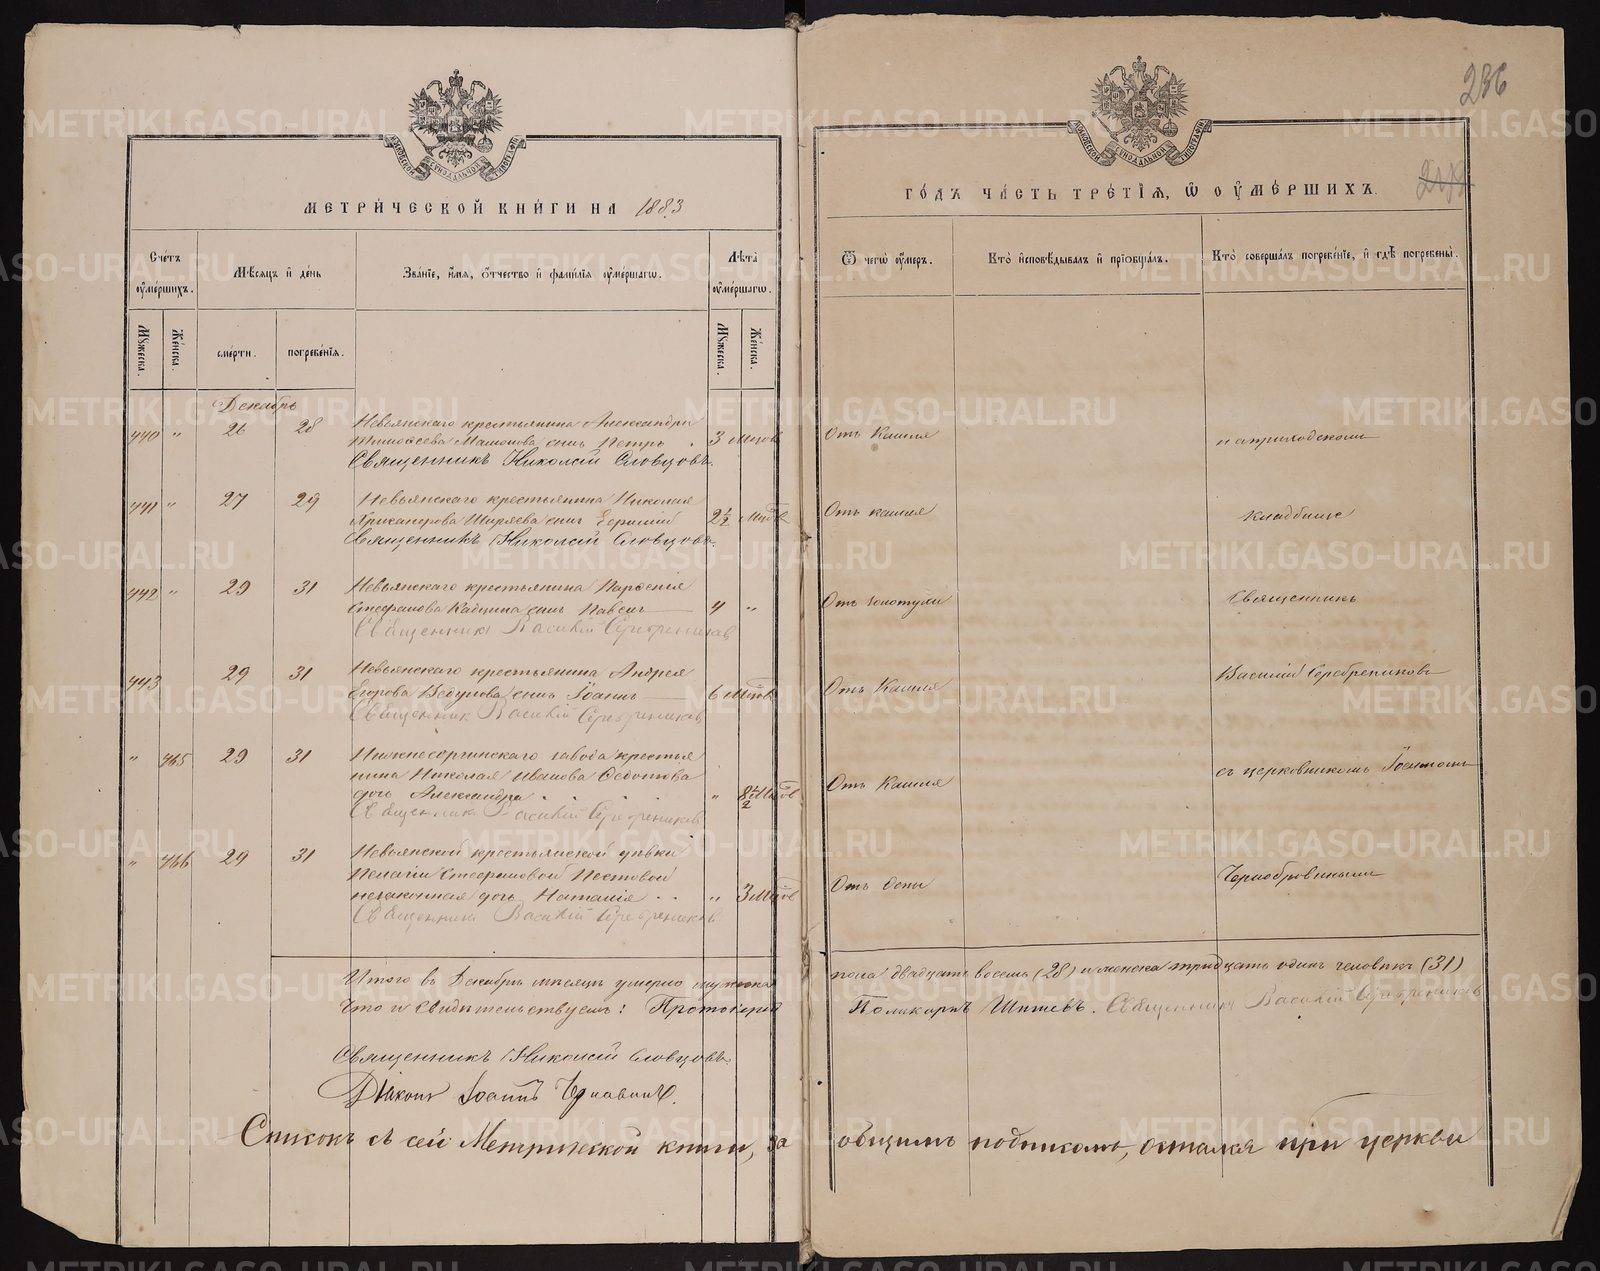 МЕТРИ́ЧЕСКОЙ КНИ́ГИ НА 1883
Сче́тъ ᲂу҆ме́ршихъ.
Мѣ́сяцъ и҆ де́нь
Зва́нїе, и҆́мя, ѻ҆́тчество и҆ фами́лїя ᲂу҆ме́ршагѡ.
Лѣ́та ᲂу҆ме́ршагѡ.
Мꙋ́жеска.
Же́нска.
сме́рти.
погребе́нїя.
Мꙋ́жеска.
Же́нска.
Декабрь
440 " 26 28 Невьянскаго крестьянина Александра
Тимоѳеева Мамонова сынъ Петръ 3 мцовъ
Священникъ Николай Словцовъ.
441 " 27 29 Невьянскаго крестьянина Николая
Никанорова Ширяева сынъ 2½ мцовъ
Священникъ Николай Словцовъ.
442 " 29 31 Невьянскаго крестьянина Парѳенія
Стефанова сынъ Павелъ 4 "
Священникъ Василій Серебрениковъ
443 29 31 Невьянскаго крестьянина Андрея
Егорова Ведунова сынъ Іоаннъ 6 мцовъ
Священник Василій Серебрениковъ
" 465 29 31 Нижнесергинскаго завода крестья
нина Николая Иванова Ѳедотова
дочь Александра " 8½ мцовъ
Священникъ Василій Серебрениковъ
" 466 29 31 Невьянской крестьянской дѣвки
Пелагіи Стефановой Пестовой
незаконная дочь Наталія " 3 мцовъ
Священникъ Василій Серебрениковъ
Итого въ Декабрѣ мѣсяцѣ умерло мужеска
Что и свидѣтельствуемъ: Протоіерей
Священникъ Николай Словцовъ.
Діаконъ Іоаннъ
Списокъ съ сей Метрической книги, за
236
ГО́ДЪ ЧА́СТЬ ТРЕ́ТЇЯ, Ѽ ОУ҆МЕ́РШИХЪ.
Ѿ чегѡ̀ ᲂу҆́меръ.
Кто̀ и҆сповѣ́дывалъ и҆ прїѡбща́лъ.
Кто̀ соверша́лъ погребе́нїе, и҆ гдѣ̀ погребены̀.
Отъ Кашля на приходскомъ
Отъ кашля кладбищѣ
Отъ золотухи Священникъ
Отъ Кашля Василій Серебрениковъ
Отъ Кашля съ церковникомъ Іоанномъ
Отъ Оспы Чернобровинымъ
пола двадцать восемь (28) и женска тридцать одинъ человѣкъ (31)
Поликарпъ Шишевъ. Священникъ Василій Серебрениковъ
общимъ подписомъ, остался при церкви
METRIKI.GASO-URAL.RU